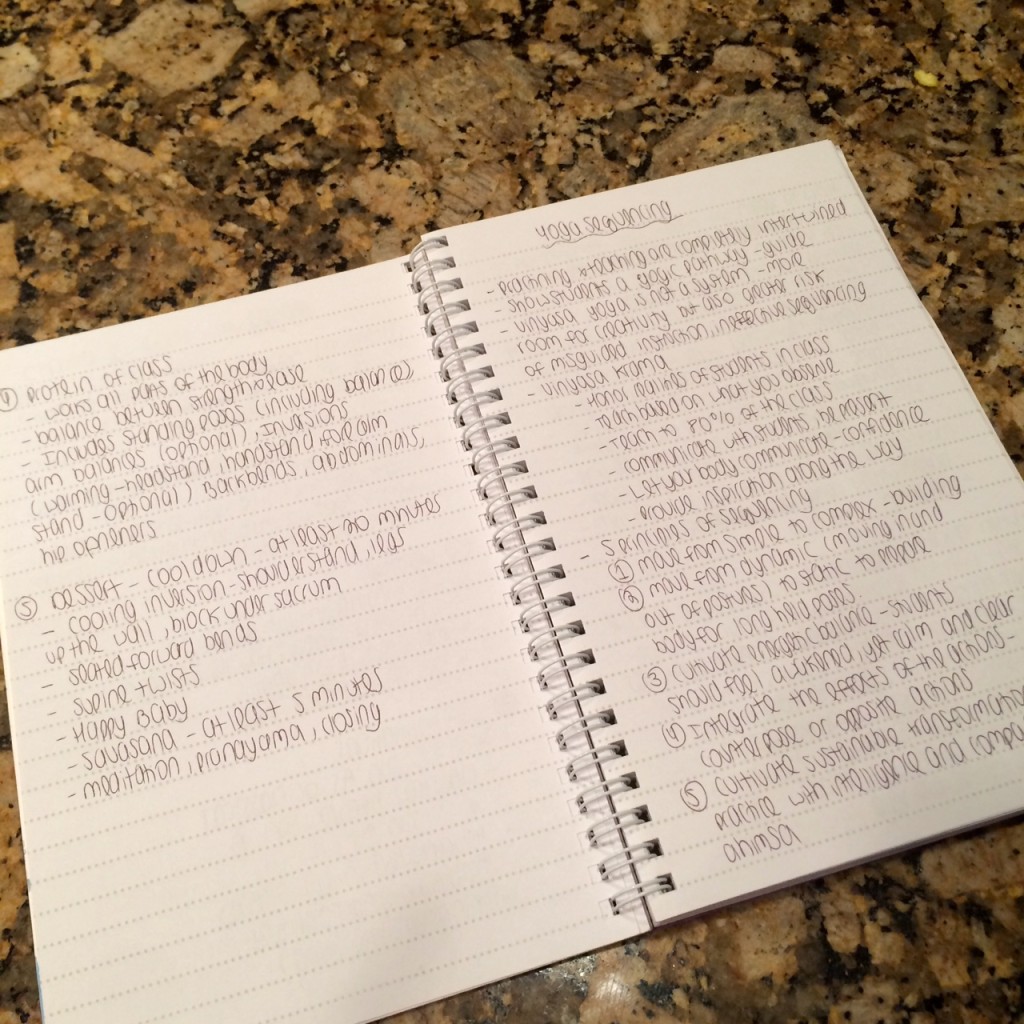 protein of class
- works all parts of the body
- balance between strength+ease
- Includes standing poses (including balances)
arm balances (optional), Inversions
(warming - headstand, handstand, forearm
stand - optional) Backbends, abdominals,
hip openers
⑤ Dessert - cool down - at least 20 minutes
- cooling inversion - shoulderstand, legs
up the wall, block under sacrum
- seated forward bends
- supine twists
- Happy Baby
- savasana - at least 5 minutes
- meditation, pranayama, closing
yoga sequencing
- & learning are completely intertwined
- show students a yogic pathway - guide
- vinyasa yoga is not a system - more
room for creativity but also greater risk
of misguided instruction, ineffective sequencing
- vinyasa krama
- honor realities of students in class
- Teach based on what you observe
- Teach to 80% of the class
- communicate with students, be present
- Let your body communicate - confidence
- Provide inspiration along the way
- 5 principles of sequencing
① move from simple to complex - building
② move from dynamic (moving in and
out of postures) to static to prepare
body for long held poses
③ cultivate energetic balance - students
should feel awakened, yet calm and clear
④ Integrate the effects of the actions -
counterpose or opposite actions
⑤ cultivate sustainable transformation
practice with intelligence and
ahimsa